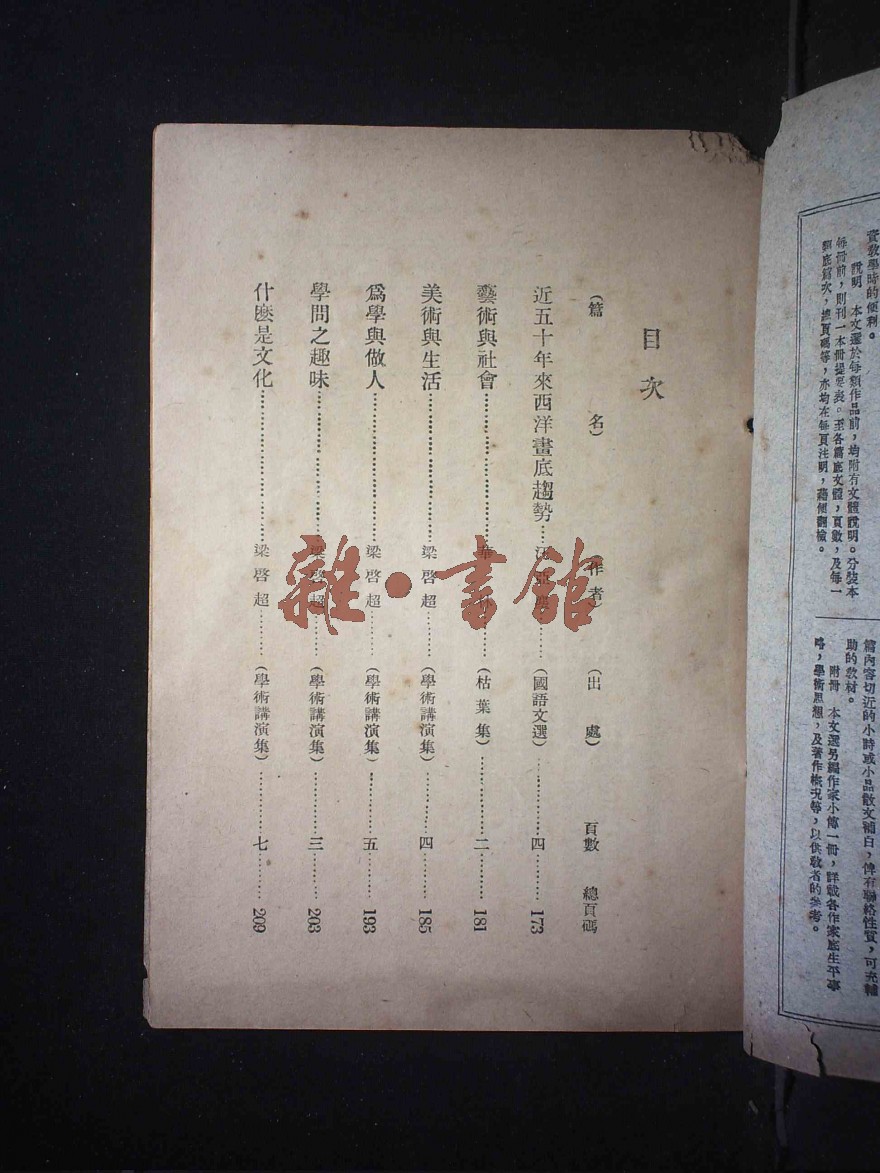 資教學時的便利。
說明　本文選於每類作品前，均附有文體說明。分裝本
每冊前，則刊一本冊提要表。至各篇底文體，頁數，及每一
類底篇次，總頁碼等，亦均在每頁注明，藉便翻檢。
篇內容切近的小詩或小品散文補白，俾有聯絡性質，可充輔
助的教材。
附冊　本文選另編作家小傳一冊，詳載各作家底生平事
略，學術思想，及著作概況等，以供教者的參考。
目次
(篇名)　(作者)　(出處)　頁數　總頁碼
近五十年來西洋畫底趨勢……汪亞塵……(國語文選)……四……173
藝術與社會……華……(枯葉集)……二……181
美術與生活……梁啓超……(學術講演集)……四……185
爲學與做人……梁啓超……(學術講演集)……五……193
學問之趣味……梁啓超……(學術講演集)……三……203
什麽是文化……梁啓超……(學術講演集)……七……209
雜·書館